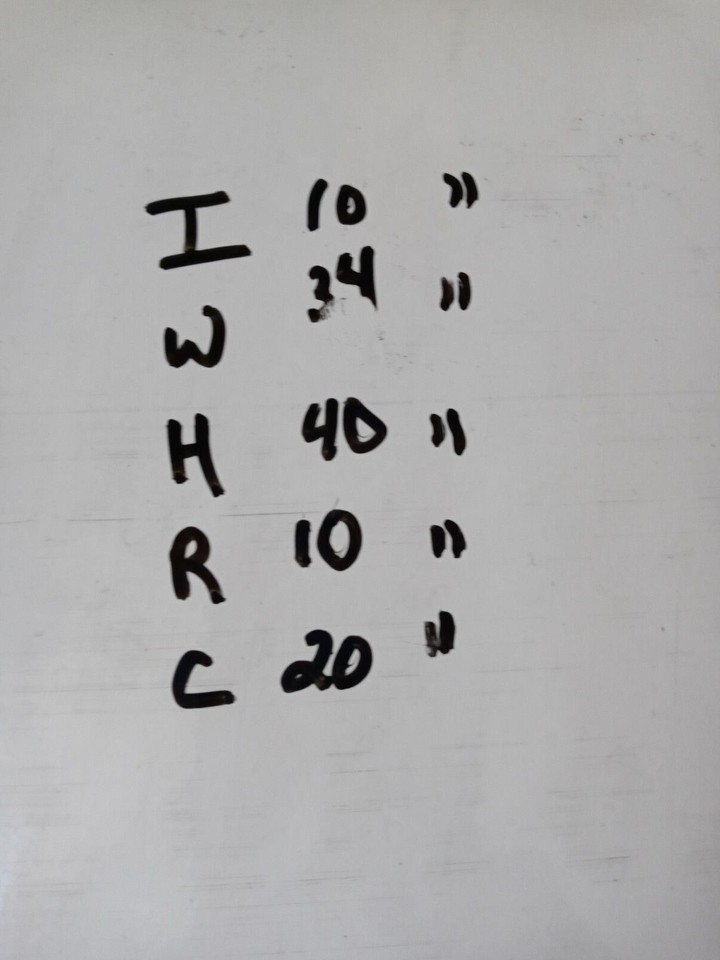 I 10 "
W 34 "
H 40 "
R 10 "
C 20 "